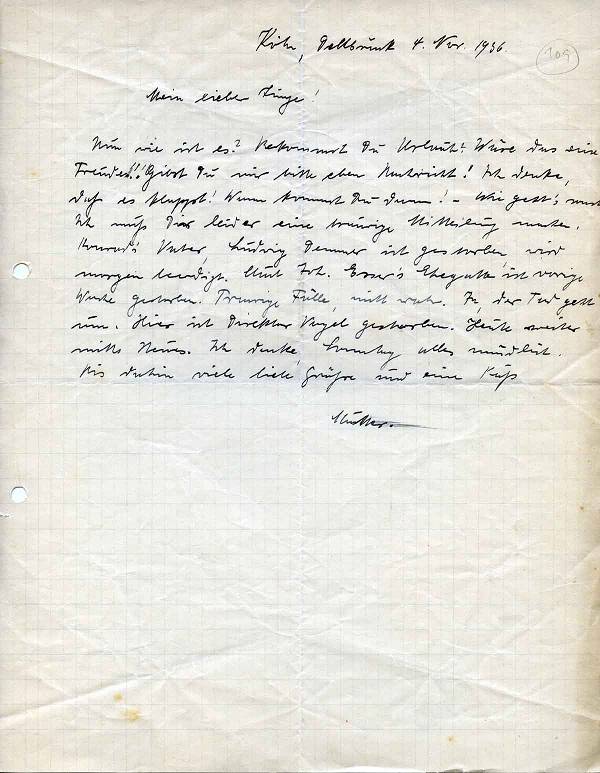 Köln, Dellbrück 4. Nov. 1936.
109
Mein lieber Junge!
Nun wie ist es? Bekommst Du Urlaub? Wäre das eine
Freude!! Gibst Du mir bitte eben Nachricht! Ich denke,
daß es klappt! Wann kommst Du dann! – Wie geht's sonst
Ich muß Dir leider eine traurige Mitteilung machen.
Konrad's Vater, Ludwig Demmer ist gestorben, wird
morgen beerdigt. Auch Joh. Esser's Ehegatte ist vorige
Woche gestorben. Traurige Fälle, nicht wahr. Ja, der Tod geht
um. Hier ist Direktor Vogel gestorben. Heute weiter
nichts Neues. Ich denke, Sonntag alles mündlich.
Bis dahin viele liebe Grüße und einen Kuß
Mutter.